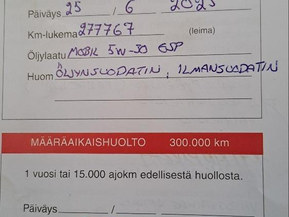 Päiväys 25 / 6 2023
Km-lukema 277767 (leima)
Öljylaatu MOBIL 5W-30 ESP
Huom ÖLJYNSUODATIN, ILMANSUODATIN
MÄÄRÄAIKAISHUOLTO 300.000 km
1 vuosi tai 15.000 ajokm edellisestä huollosta.
Päiväys / /